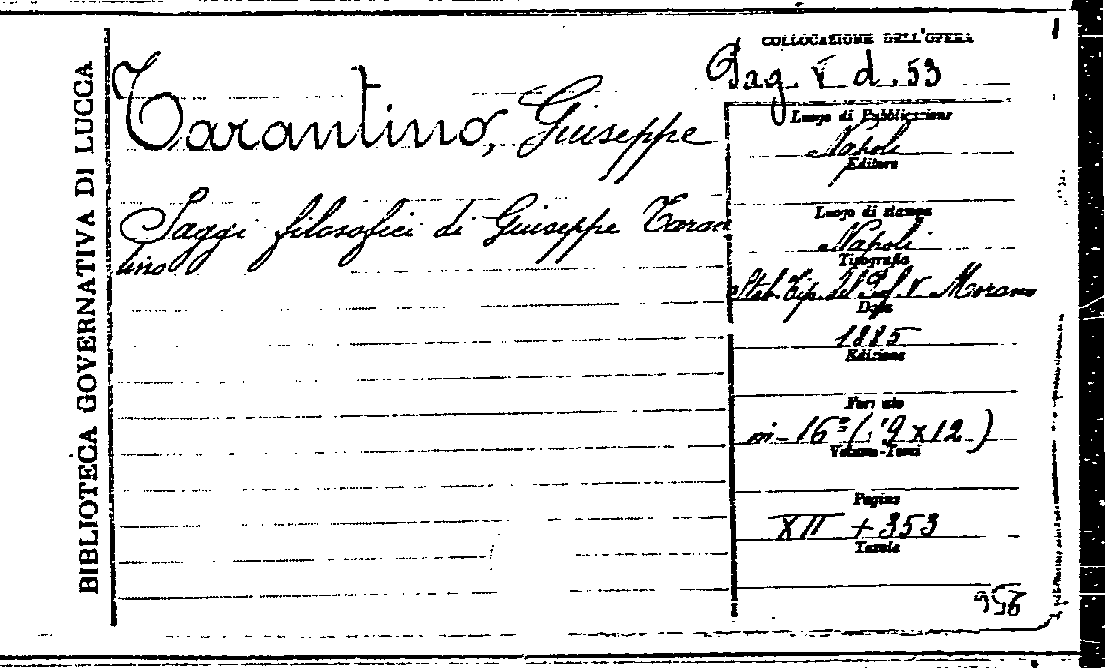 BIBLIOTECA GOVERNATIVA DI LUCCA
Tarantino, Giuseppe
Saggi filosofici di Giuseppe Taran
tino
COLLOCAZIONE DELL'OPERA
Pag. V d. 53
Luogo di Pubblicazione
Napoli
Editore
Luogo di stampa
Napoli
Tipografia
Stab. Tip. del Prof. V. Morano
Data
1885
Edizione
Formato
in-16º (19x12)
Volume-Tomi
Pagine
XII + 353
Tavole